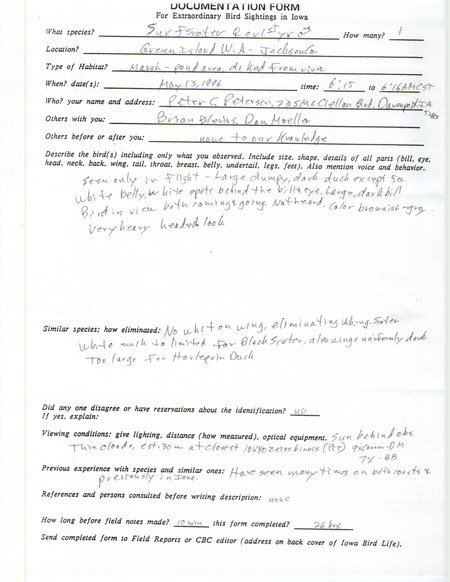 DOCUMENTATION FORM
For Extraordinary Bird Sightings in Iowa
What species? Surf Scoter ♀ or 1st yr ♂ How many? 1
Location? Green Island W.A - Jackson Co
Type of Habitat? Marsh - pond area, diked from river
When? date(s): May 13, 1996 time: 6:15 to 6:16AM CST
Who? your name and address: Peter C Petersen, 235 McClellan Blvd. Davenport IA
Others with you: Brian Blevins, Don Moeller
Others before or after you: none to our knowledge
Describe the bird(s) including only what you observed. Include size, shape, details of all parts (bill, eye,
head, neck, back, wing, tail, throat, breast, belly, undertail, legs, feet). Also mention voice and behavior.
Seen only in flight - Large dumpy, dark duck except for
white belly, white spots behind the bill & eye, Large, dark bill
Bird in view both coming & going. Not heard. Color brownish-gray
Very heavy headed look.
Similar species; how eliminated: No whit on wing, eliminating Wh-wg. Scoter
White much to limited for Black Scoter, also wings uniformly dark
Too large for Harlequin Duck
Did any one disagree or have reservations about the identification? no
If yes, explain:
Viewing conditions: give lighting, distance (how measured), optical equipment. Sun behind obs
Thin clouds, est. 30 m. at closest 10x40 Zeiss binocs (PCP) DM
7X - BB
Previous experience with species and similar ones: Have seen many times on both coasts &
previously in Iowa.
References and persons consulted before writing description: none
How long before field notes made? 10 min this form completed? 26 hrs
Send completed form to Field Reports or CBC editor (address on back cover of Iowa Bird Life).